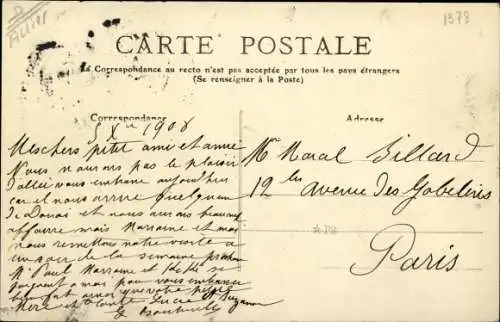 Allier
1378
CARTE POSTALE
La Correspondance au recto n'est pas acceptée par tous les pays étrangers
(Se renseigner à la Poste)
Correspondance
Adresse
5 Xbre 1908
Mes chers petit ami et amie
Nous n'aurons pas le plaisir
d'aller vous embrasse aujourd'hui
car il nous arrive quelqu'un
de Douai et nous aurons beaucoup
affaire mais Marraine et moi
nous remettons notre visite à
un soir de la semaine prochaine
Mr Paul Marraine et se
joignent à moi pour vous embrasser
bien fort ainsi que votre petite
Mère et Tante Lucie et Suzanne
Mr Marcel Billard
12 bis avenue des Gobelins
Paris